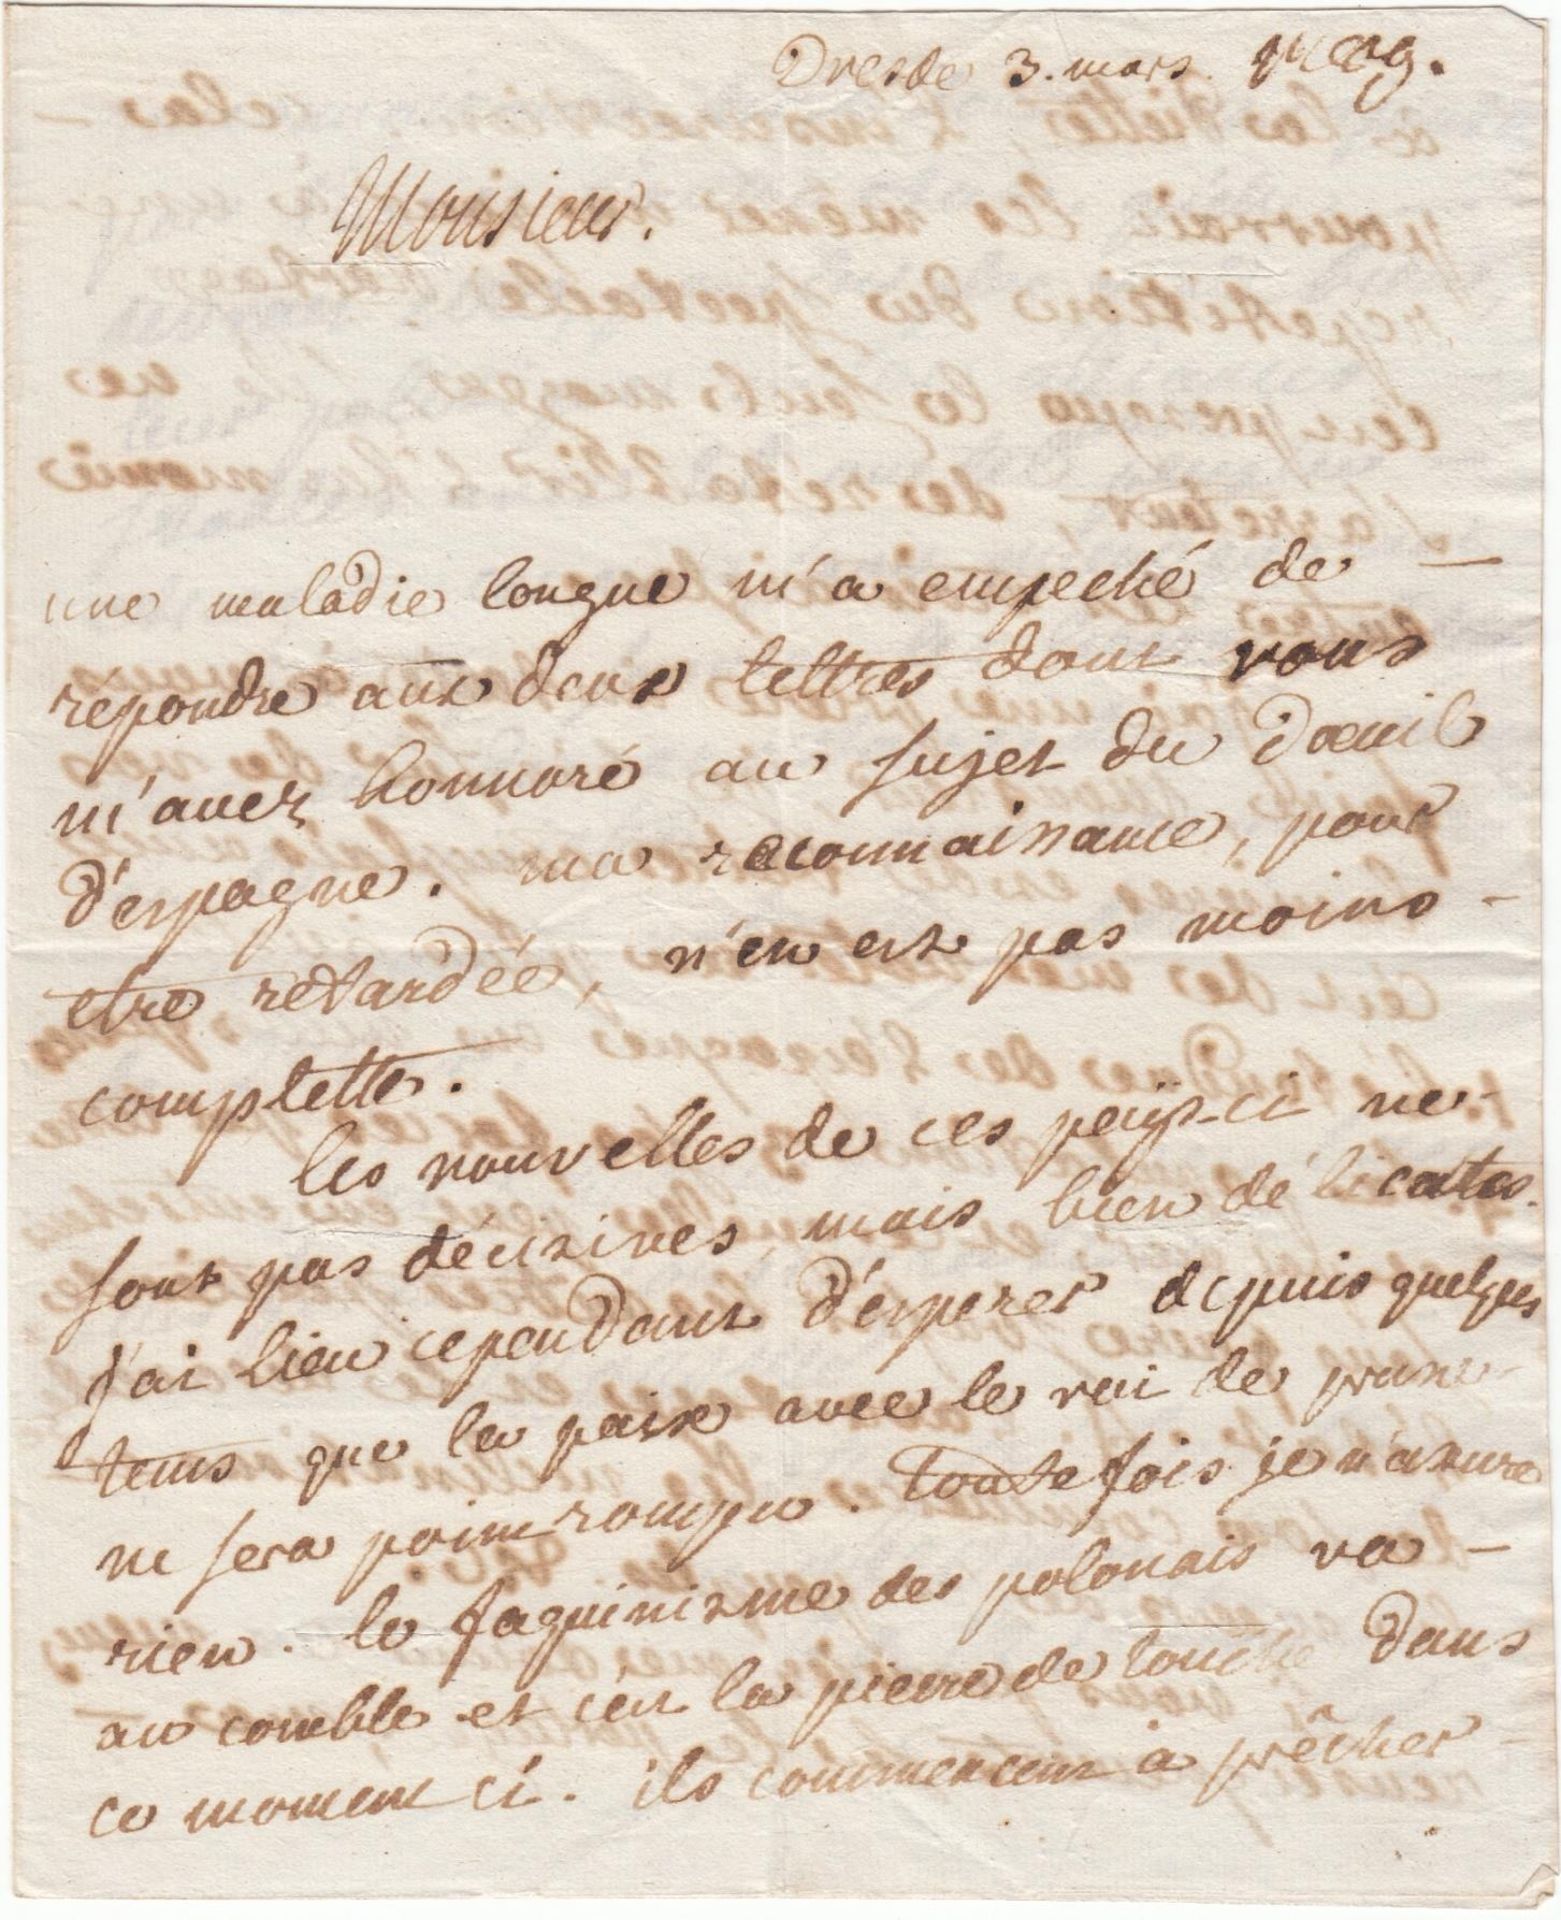 Dresde 3. mars
Monsieur.
une maladie longue m'a empeché de —
répondre aux deux lettres dont vous
m'avez honnoré au sujet du doeuil
d'espagne. ma reconnaissance, pour
etre retardée, n'en est pas moins -
complette.
les nouvelles de ces païs-ci ne
sont pas décisives, mais bien délicates.
j'ai lieu cependant d'esperer depuis quelques
tems que la paix avec le roi de prusse
ne sera point rompue. toutefois je n'assure
rien. le faquinisme des polonais va —
au comble et c'est la pierre de touche dans
ce moment ci. ils commencent à prêcher